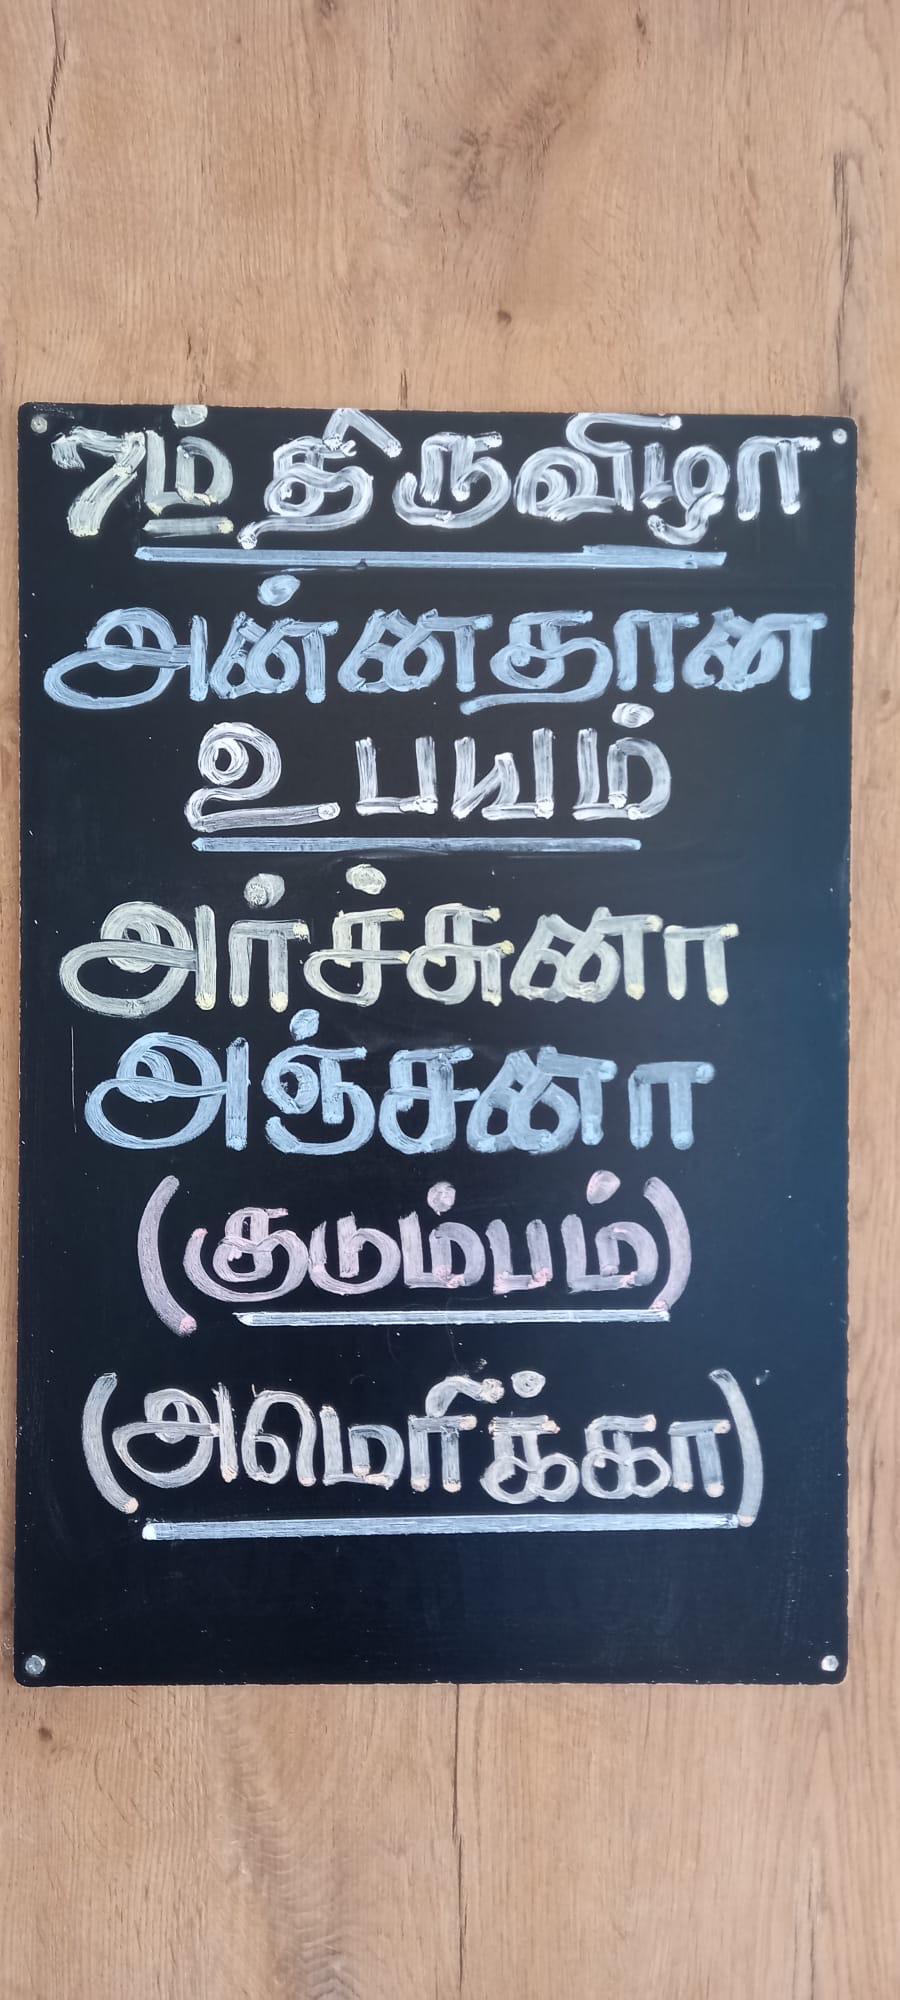 7ம் திருவிழா
அன்னதான
உபயம்
அர்ச்சுனா
அஞ்சனா
(குடும்பம்)
(அமெரிக்கா)